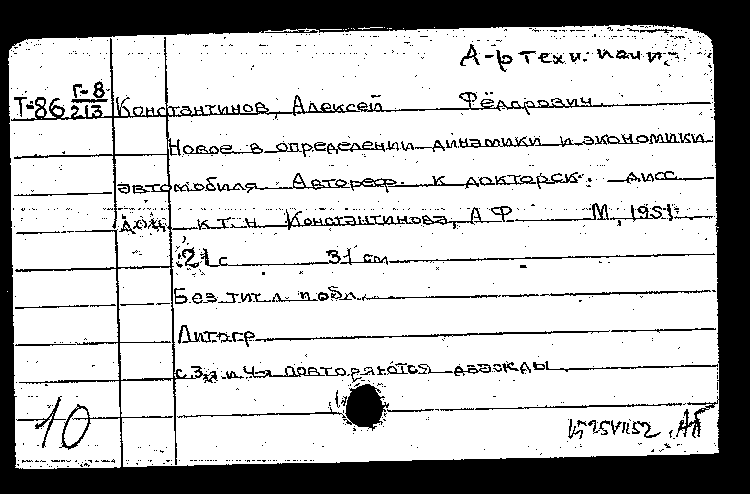 А-р техн. наук.
Г-8
Т-86 213 Константинов, Алексей Фёдорович
Новое в определении динамики и экономики
автомобиля Автореф. к докторск. дисс
доц. к.т.н. Константинова, А Ф М, 1951.
21 с 31 см
Без тит л. и обл.
Литогр
с. 3-я и 4-я повторяются дважды
10
25 VII 52 АБ